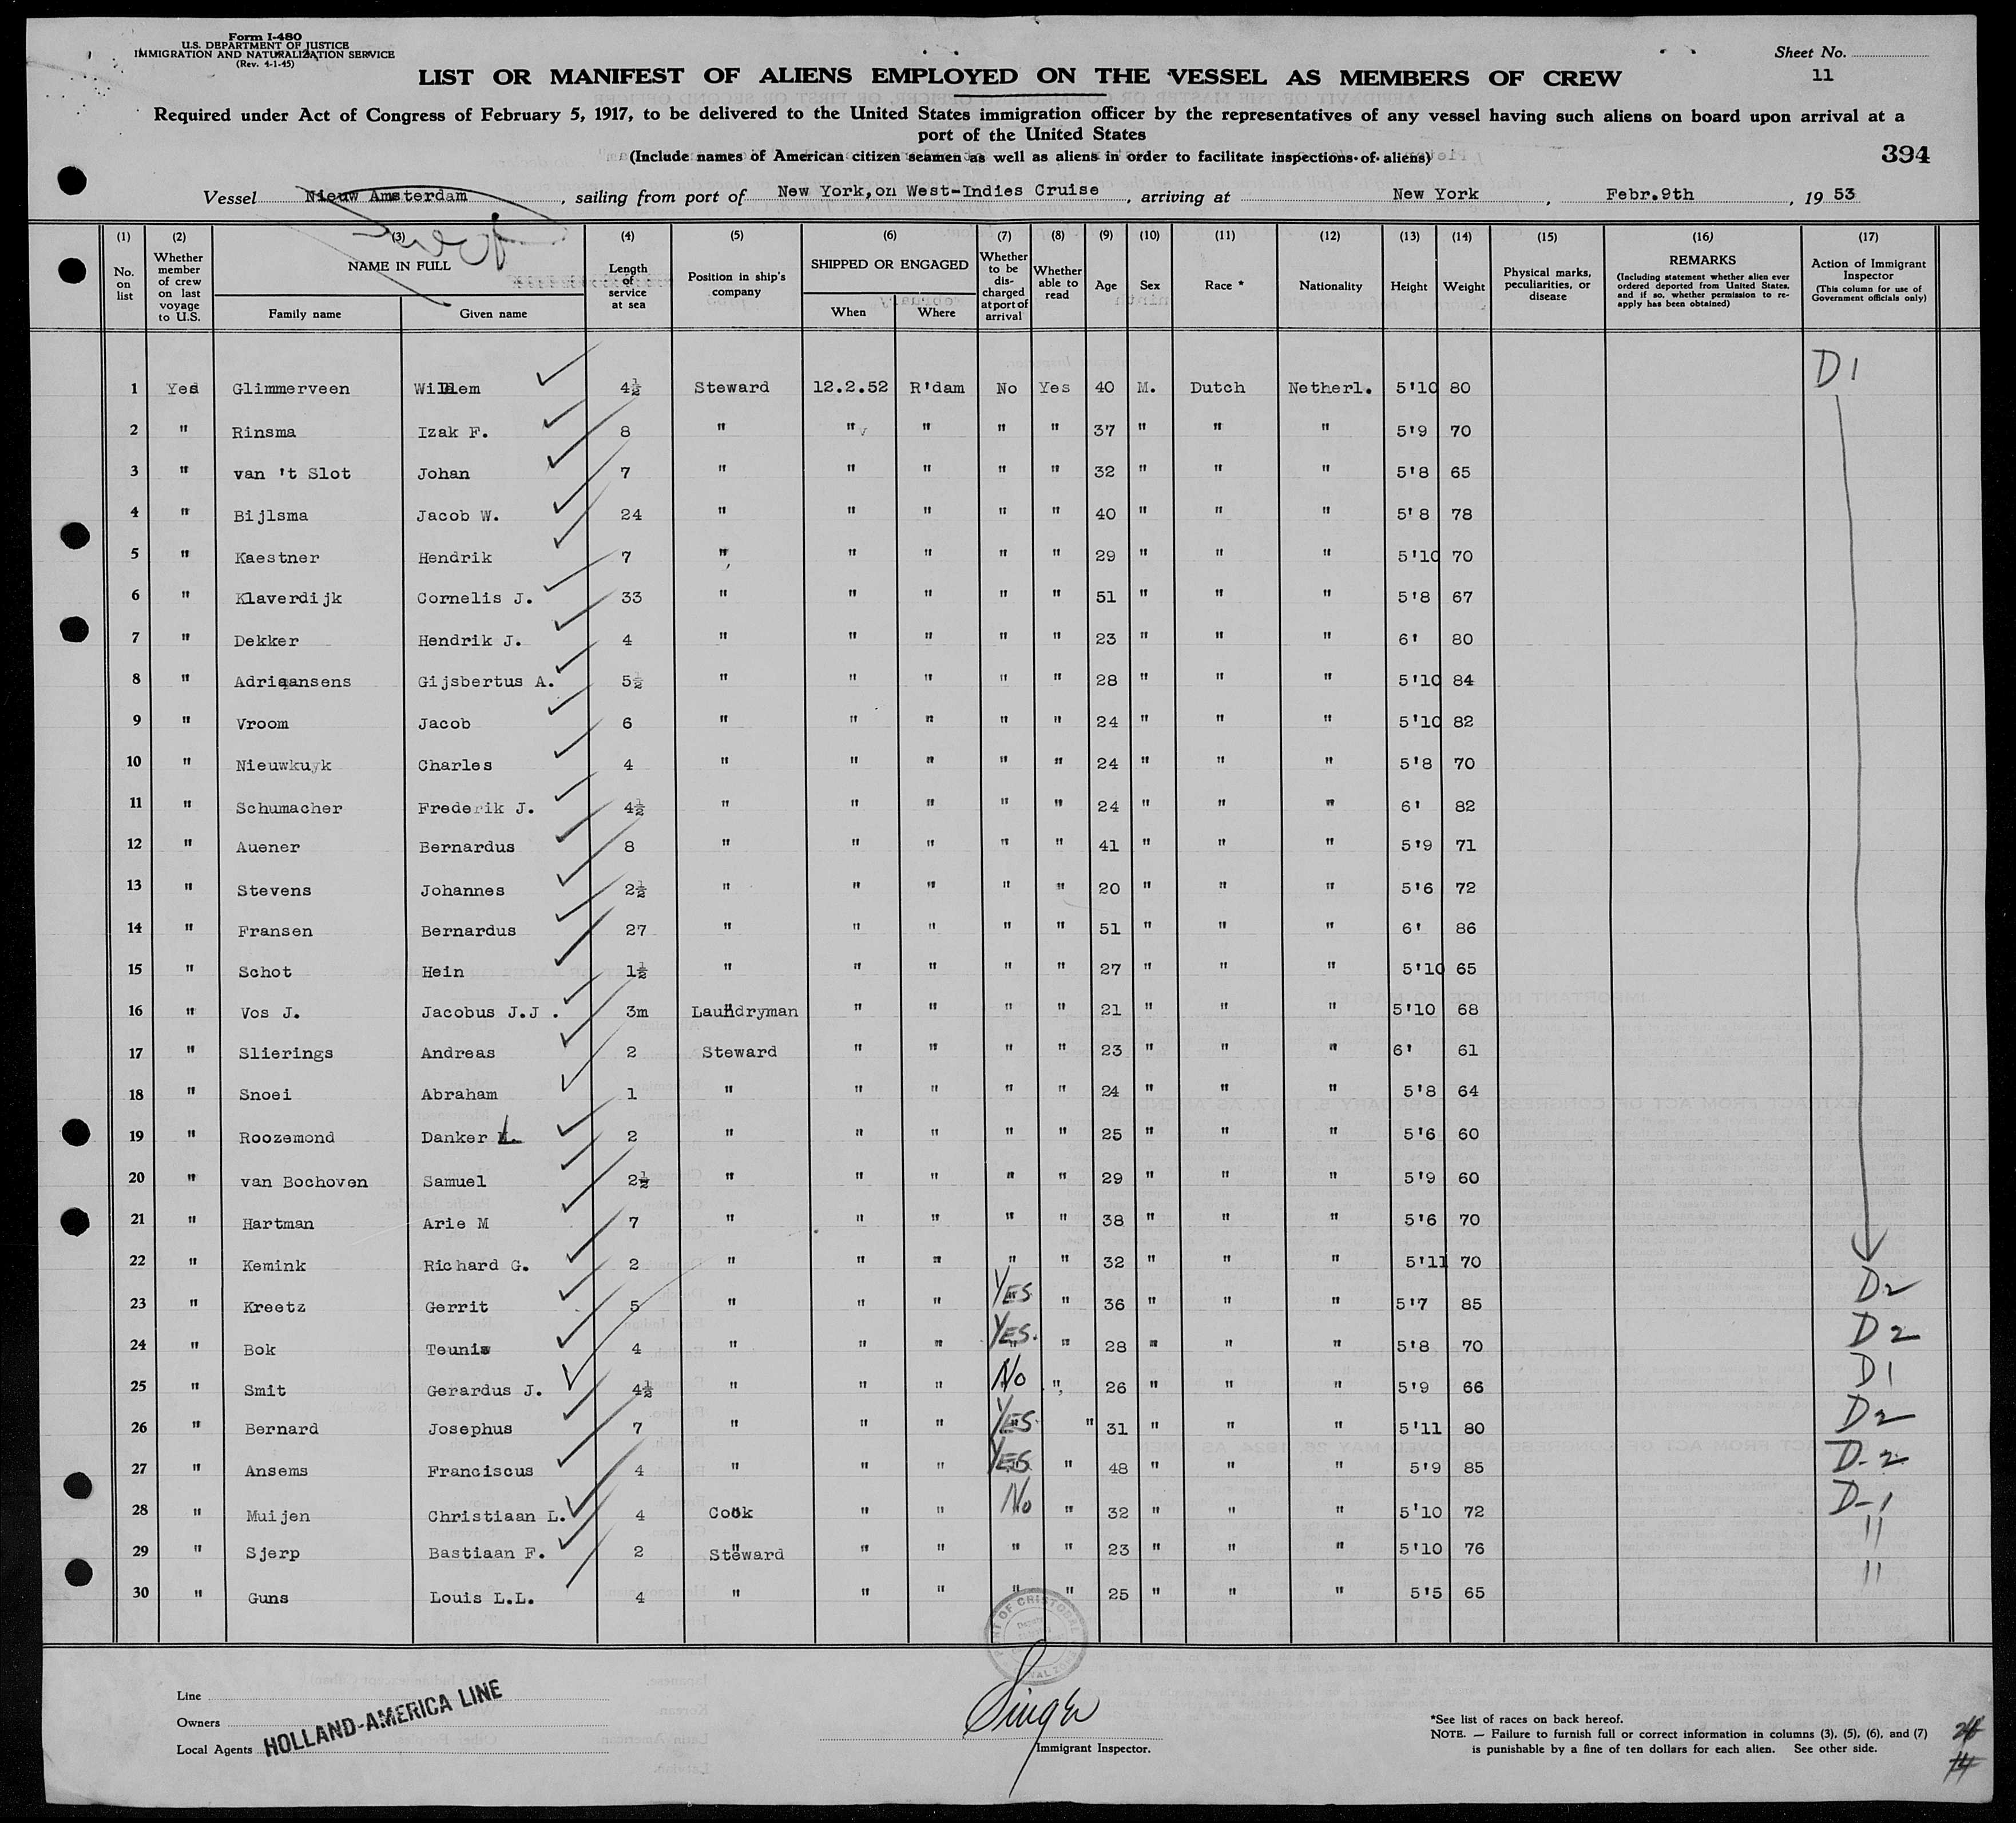 Form I-480
U.S. DEPARTMENT OF JUSTICE
IMMIGRATION AND NATURALIZATION SERVICE
(Rev. 4-1-45)
Sheet No.
11
LIST OR MANIFEST OF ALIENS EMPLOYED ON THE VESSEL AS MEMBERS OF CREW
Required under Act of Congress of February 5, 1917, to be delivered to the United States immigration officer by the representatives of any vessel having such aliens on board upon arrival at a
port of the United States
(Include names of American citizen seamen as well as aliens in order to facilitate inspections of aliens)
394
Vessel Nieuw Amsterdam, sailing from port of New York, on West-Indies Cruise, arriving at New York, Febr.9th, 19 53
(1) (2) (3) (4) (5) (6) (7) (8) (9) (10) (11) (12) (13) (14) (15) (16) (17)
No. on list
Whether member of crew on last voyage to U.S.
NAME IN FULL
Family name Given name
Length of service at sea
Position in ship's company
SHIPPED OR ENGAGED
When Where
Whether to be discharged at port of arrival
Whether able to read
Age
Sex
Race *
Nationality
Height
Weight
Physical marks, peculiarities, or disease
REMARKS
(Including statement whether alien ever ordered deported from United States, and if so, whether permission to reapply has been obtained)
Action of Immigrant Inspector
(This column for use of Government officials only)
1 Yes Glimmerveen Willem 4½ Steward 12.2.52 R'dam No Yes 40 M. Dutch Netherl. 5'10 80 D1
2 " Rinsma Izak F. 8 " " " " " 37 " " " 5'9 70
3 " van 't Slot Johan 7 " " " " " 32 " " " 5'8 65
4 " Bijlsma Jacob W. 24 " " " " " 40 " " " 5'8 78
5 " Kaestner Hendrik 7 " " " " " 29 " " " 5'10 70
6 " Klaverdijk Cornelis J. 33 " " " " " 51 " " " 5'8 67
7 " Dekker Hendrik J. 4 " " " " " 23 " " " 6' 80
8 " Adriaansens Gijsbertus A. 5½ " " " " " 28 " " " 5'10 84
9 " Vroom Jacob 6 " " " " " 24 " " " 5'10 82
10 " Nieuwkuyk Charles 4 " " " " " 24 " " " 5'8 70
11 " Schumacher Frederik J. 4½ " " " " " 24 " " " 6' 82
12 " Auener Bernardus 8 " " " " " 41 " " " 5'9 71
13 " Stevens Johannes 2½ " " " " " 20 " " " 5'6 72
14 " Fransen Bernardus 27 " " " " " 51 " " " 6' 86
15 " Schot Hein 1½ " " " " " 27 " " " 5'10 65
16 " Vos J. Jacobus J.J. 3m Laundryman " " " " 21 " " " 5'10 68
17 " Slierings Andreas 2 Steward " " " " 23 " " " 6' 61
18 " Snoei Abraham 1 " " " " " 24 " " " 5'8 64
19 " Roozemond Danker L. 2 " " " " " 25 " " " 5'6 60
20 " van Bochoven Samuel 2½ " " " " " 29 " " " 5'9 60
21 " Hartman Arie M 7 " " " " " 38 " " " 5'6 70
22 " Kemink Richard G. 2 " " " " " 32 " " " 5'11 70
23 " Kreetz Gerrit 5 " " " YES " 36 " " " 5'7 85 D2
24 " Bok Teunis 4 " " " YES. " 28 " " " 5'8 70 D2
25 " Smit Gerardus J. 4½ " " " No " 26 " " " 5'9 66 D1
26 " Bernard Josephus 7 " " " YES " 31 " " " 5'11 80 D2
27 " Ansems Franciscus 4 " " " YES " 48 " " " 5'9 85 D-2
28 " Muijen Christiaan L. 4 Cook " " No " 32 " " " 5'10 72 D-1
29 " Sjerp Bastiaan F. 2 Steward " " " " 23 " " " 5'10 76 "
30 " Guns Louis L.L. 4 " " " " " 25 " " " 5'5 65 "
PORT OF CRISTOBAL
Line
Owners
Local Agents
HOLLAND-AMERICA LINE
Singer
Immigrant Inspector.
*See list of races on back hereof.
NOTE. — Failure to furnish full or correct information in columns (3), (5), (6), and (7)
is punishable by a fine of ten dollars for each alien. See other side.